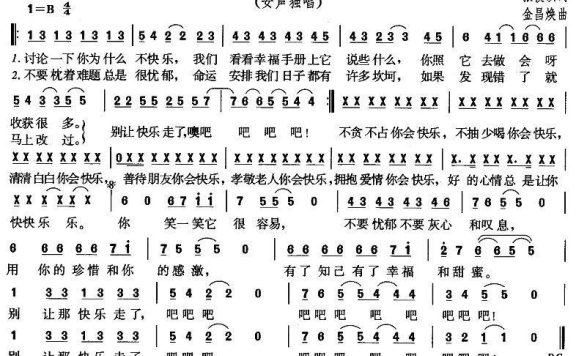 （女声独唱）
1=B 4/4
金昌焕 曲
13 13 13 13 | 54 22 23 | 34 33 43 45 | 50 0 23 | 6 41 1666
1.讨论一下你为什么 不快乐， 我们 看看幸福手册上它 说些什么， 你照 它 去做 会 呀
2.不要枕着难题总是 很忧郁， 命运 安排我们日子都有 许多坎坷， 如果 发 现错 了 就
54 3355 | 22552557 | 766554 | XX XX XX XX | XX XX XX XX
收获很 多。
马上改 过。
别让快乐走了，噢吧 吧 吧 吧！ 不贪不占你会快乐， 不抽少喝你会快乐，
XX XX XX XX | 0X XX XX XX | XX XX XX XX | XX XX XX XX | X. X X. X X X X X
清清白白你会快乐， 善待朋友你会快乐，孝敬老人你会快乐，拥抱爱情你会快乐， 好 的 心情 总 是 让你
XX XX X | 6 0 6 755 | 5 5 5 0 | 43 43 43 46 | 765 5 0
快快乐 乐。 你 笑一笑它 很 容易， 不要忧郁不要灰心 和叹息，
6 66 66 7i | 6 55 5 0 | 66 66 66 7i | 2 7 6 6 5 5
用 你的 珍惜 和你 的 感激， 有了 知己 有了 幸福 和 甜蜜。
1 33 13 33 | 54 22 0 | 765 5444 | 34 55 0
别 让那 快乐 走了， 吧吧 吧 吧吧吧 吧 吧 吧吧吧！
1 33 13 33 | 54 22 0 | 765 5444 | 32 11 0